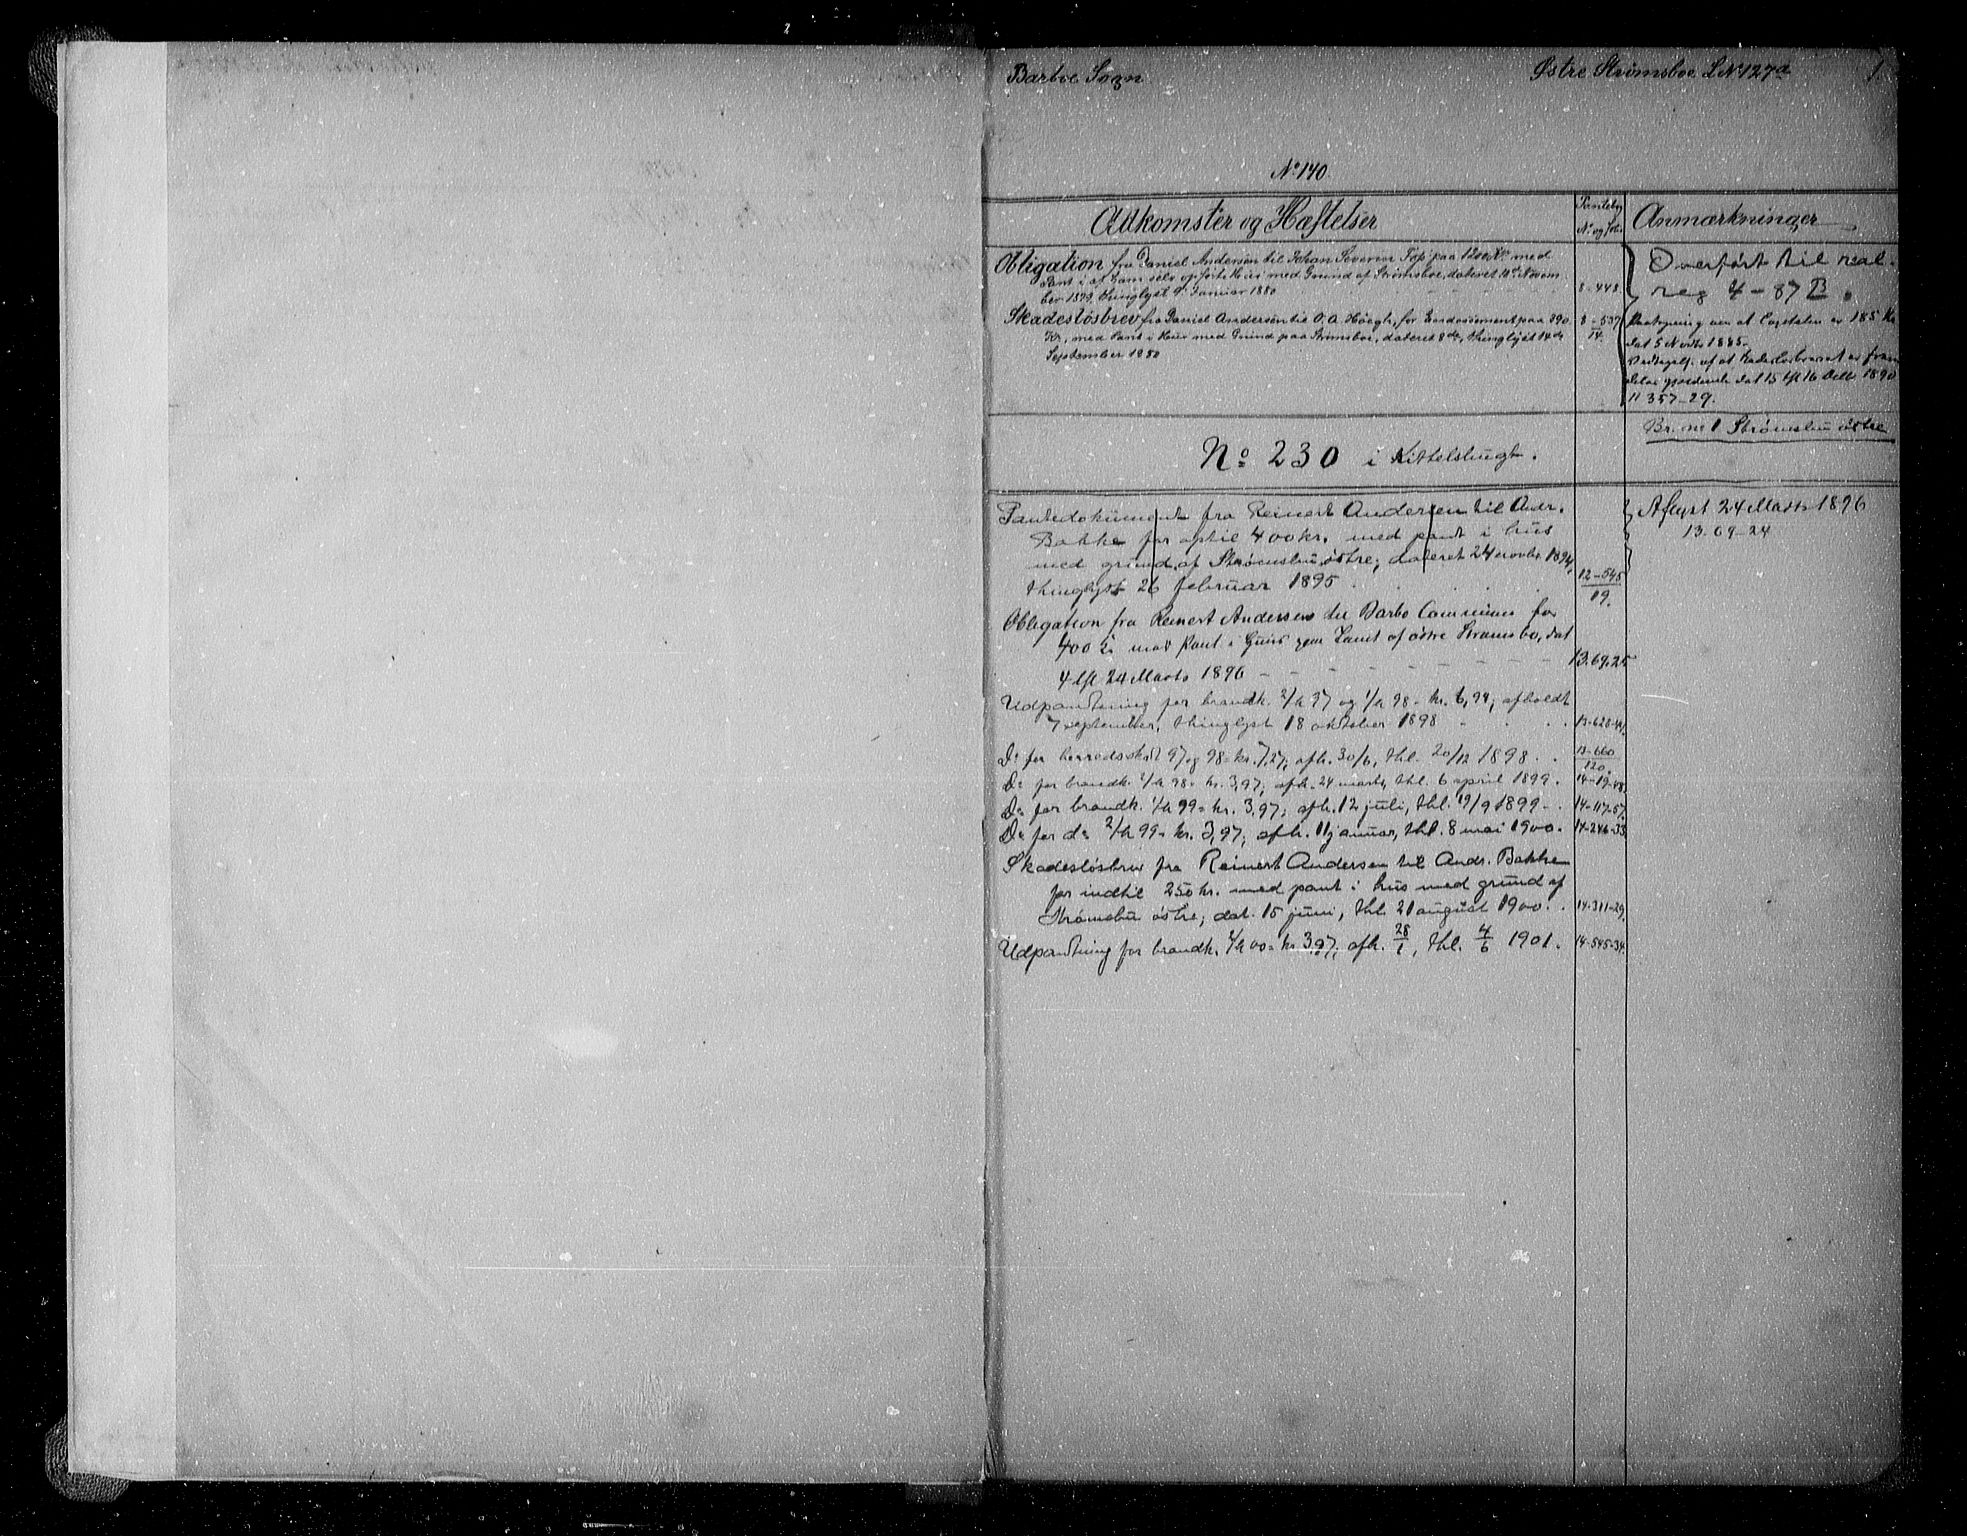 Barboe Sogn
Østre Strømsboe LNo 127a
1.
No 140
Adkomster og Hæftelser
Pantebog
No og Fol.
Anmærkninger
Obligation fra Daniel Andersen til Johan Severin paa 1200 Kr med
Pant i af ham selv opførte Huus med Grund af Strømsboe, dateret 10de Novem
ber 1879, thinglyst Januar 1880
8-448
Overført til real-
reg 4-87 B.
Skadesløsbrev fra Daniel Andersen til O. A. Höegh, for Endossement paa 390
Kr, med Pant i Huus med Grund paa Strømsboe, dateret 8de, thinglyst 14de
September 1880
8-537
14.
Paategning om at Capitalen er 185 Kr
dat 5 Novbr 1885.
af at Skadesløsbrevet er frem
deles gjældende dat 15 tgl 16 Octb 1890
11 357-29.
No 230 i Kittelsbugt.
Br. no 1 Strømsbu østre
Pantedokument fra Reinert Andersen til Andr.
Bakke for optil 400 kr. med pant i hus
med grund af Strømsbu østre; dateret 24 novbr 1894,
thinglyst 26 februar 1895
12-545
19.
Aflyst 24 Marts 1896
13-69-24
Obligation fra Reinert Andersen til Barbo Commune for
400 Kr mod Pant i Huus paa Tomt af østre Strømsbo, dat
4 tgl 24 Marts 1896
13.69.25
Udpantning for brandk. 2/h 97 og 1/h 98 = kr. 6,94; afholdt
7 september, thinglyst 18 oktober 1898
13-628-
Do for herredssk 97 og 98 = kr. 7,27; afh. 30/6, thl. 20/12 1898
13-660
120.
Do for brandk. 2/h 98 = kr. 3,97; afh. 24 marts, thl. 6 april 1899.
14-19-48
Do for brandk. 1/h 99 = kr. 3,97; afh. 12 juli, thl. 19/9 1899
14-117-57.
Do for do 2/h 99 = kr. 3,97; afh. 11 januar, thl. 8 mai 1900.
14-246-33
Skadesløsbrev fra Reinert Andersen til Andr. Bakke
for indtil 250 kr. med pant i hus med grund af
Strømsbu østre; dat. 15 juni, thl. 21 august 1900.
14-311-29,
Udpantning for brandk. 2/h 00 = kr 3,97; afh. 28/1, thl. 4/6 1901.
14-545-34.